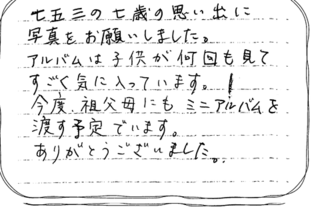 七五三の七歳の思い出に
写真をお願いしました。
アルバムは子供が何回も見て
すごく気に入っています。
今度、祖父母にもミニアルバムを
渡す予定でいます。
ありがとうございました。